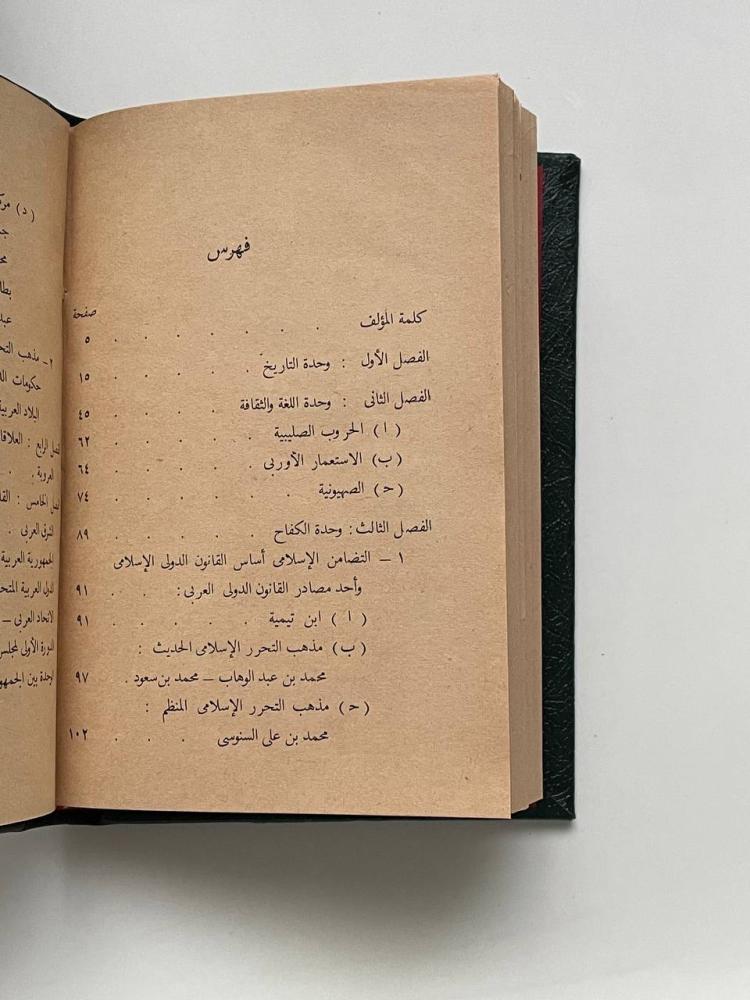 فهرس
صفحة
كلمة المؤلف . . . . . . . ٥
الفصل الأول : وحدة التاريخ . . . . . ١٥
الفصل الثانى : وحدة اللغة والثقافة . . . . ٤٥
( ا ) الحروب الصليبية . . . . . ٦٢
(ب) الاستعمار الأوربى . . . . . ٦٤
(ح) الصهيونية . . . . . . ٧٤
الفصل الثالث : وحدة الكفاح . . . . . ٨٩
١ – التضامن الإسلامى أساس القانون الدولى الإسلامى
وأحد مصادر القانون الدولى العربى : . . ٩١
( ا ) ابن تيمية . . . . . ٩١
(ب) مذهب التحرر الإسلامى الحديث :
محمد بن عبد الوهاب – محمد بن سعود . ٩٧
(ح) مذهب التحرر الإسلامى المنظم :
محمد بن على السنوسى . . . ١٠٢
(د)
٢ – مذهب
حكومات
البلاد العربية
الرابع : العلاقا
العروبة .
الخامس :
الشرق العربى .
الجمهورية العربية
الدول العربية
الاتحاد العربى –
الدورة الأولى لمجلس
الوحدة بين